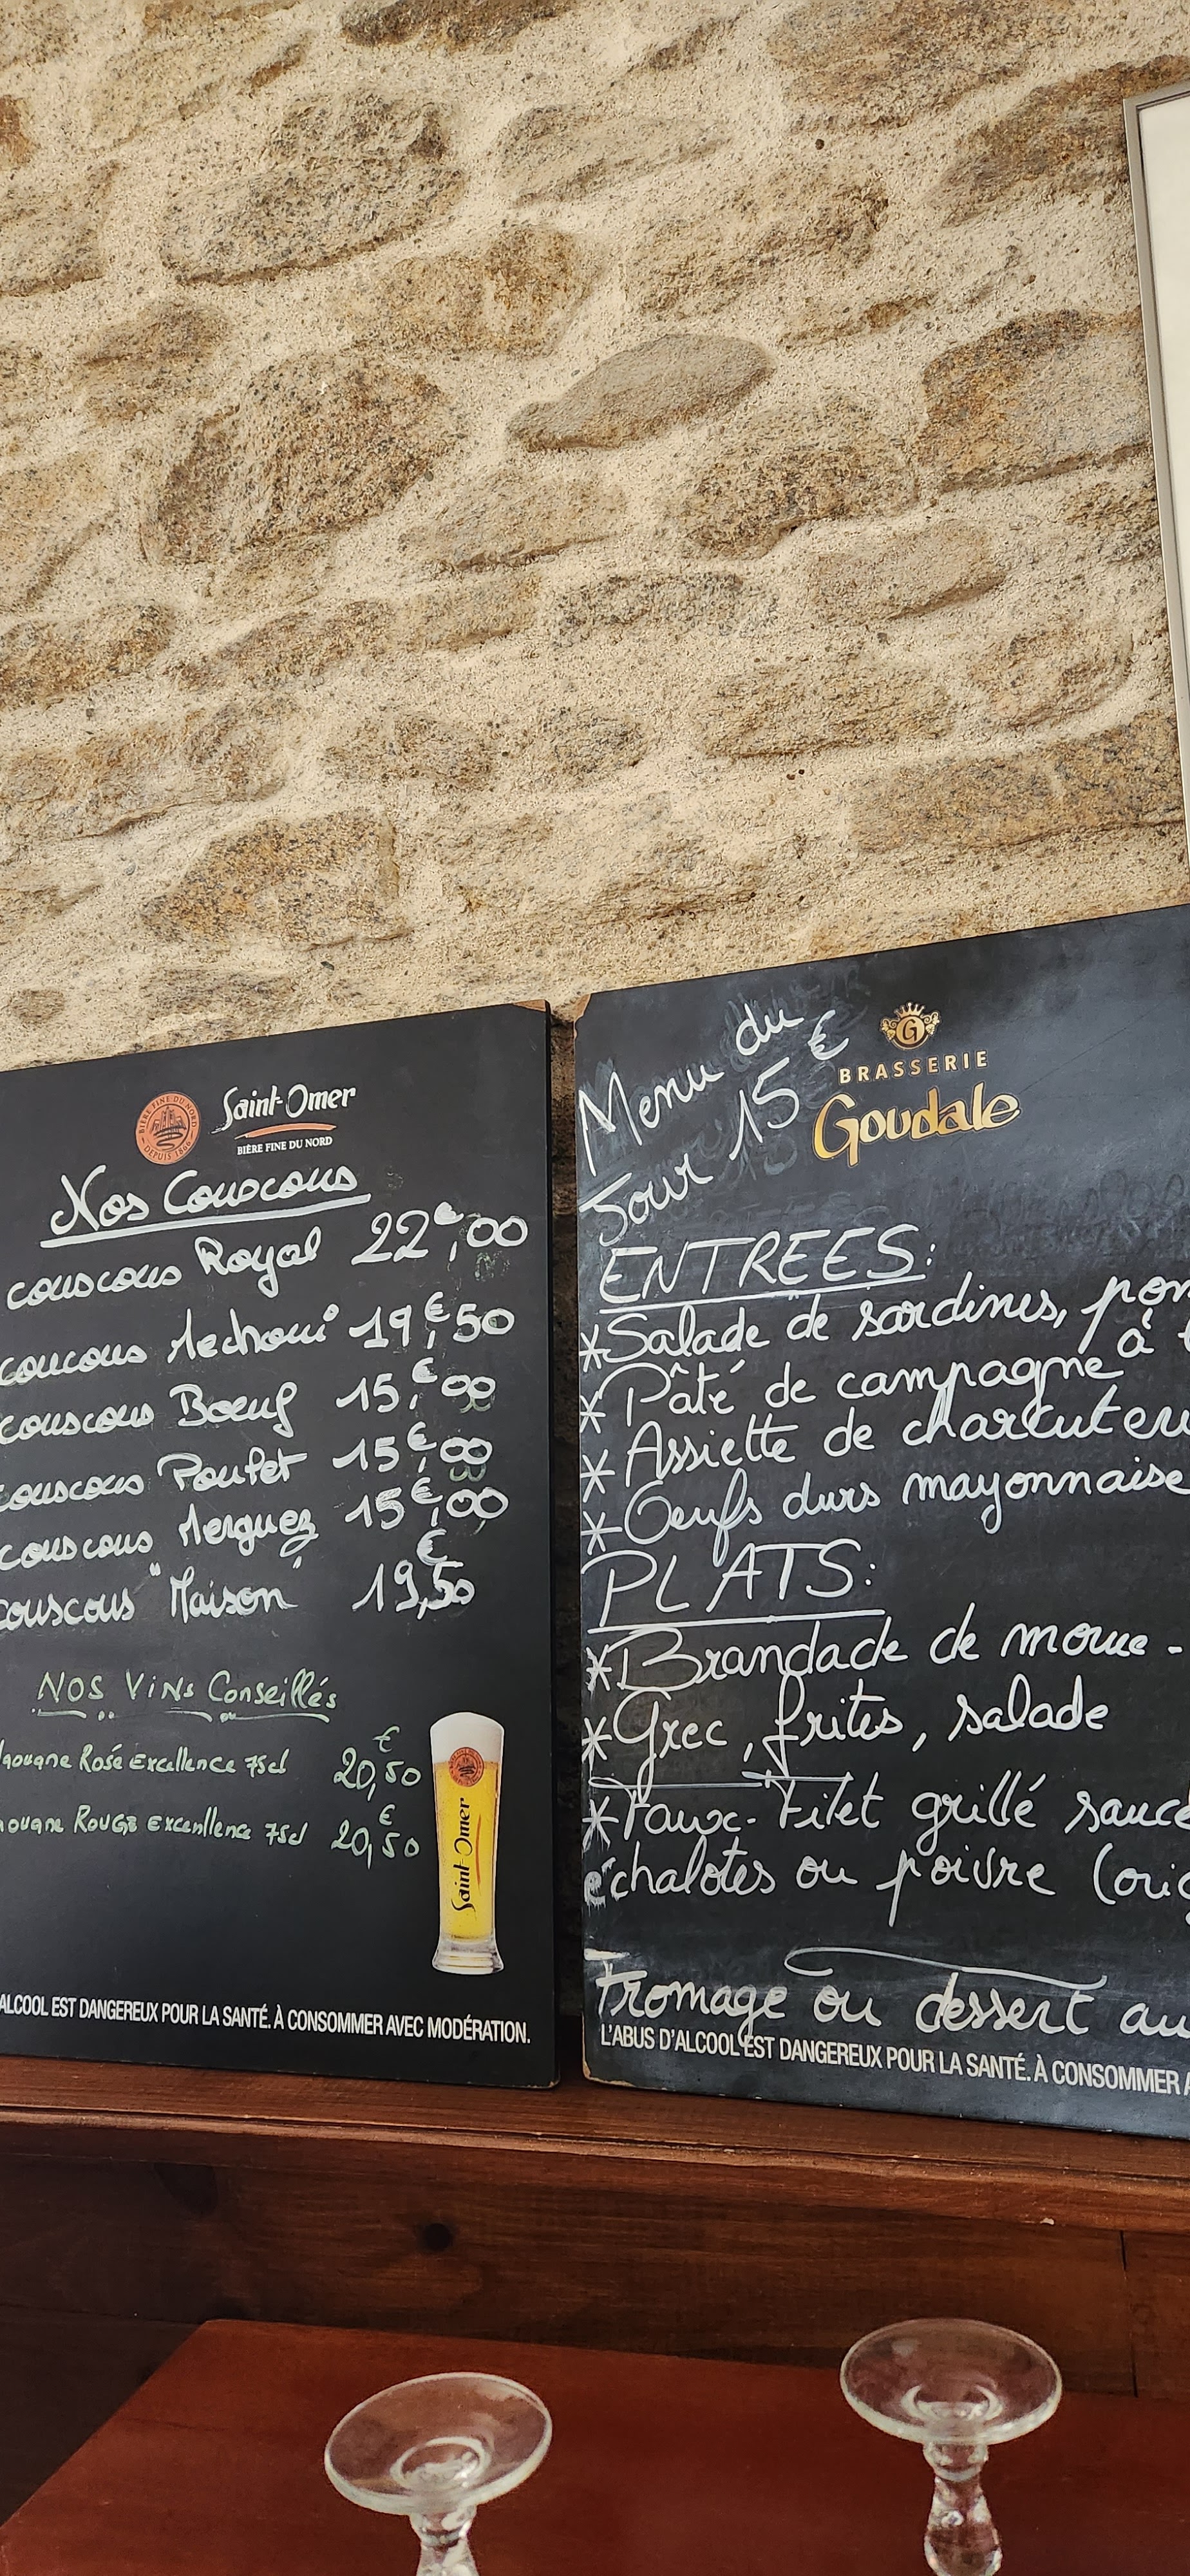 BIÈRE FINE DU NORD
DEPUIS 1866
Saint-Omer
BIÈRE FINE DU NORD
Nos Couscous
couscous Royal 22€,00
coucous Mechoui 19€,50
couscous Boeuf 15,€00
couscous Poulet 15€,00
couscous Merguez 15€,00
couscous "Maison" 19,50 €
NOS VINS Conseillés
Rosé Excellence 75cl 20,50 €
Rouge Excenllence 75cl 20,50 €
Saint-Omer
ALCOOL EST DANGEREUX POUR LA SANTÉ. À CONSOMMER AVEC MODÉRATION.
Menu du
Jour 15 €
G
BRASSERIE
Goudale
ENTREES:
*Salade de sardines, pom
* Pâté de campagne à
* Assiette de charcuterie
* Oeufs durs mayonnaise
PLATS:
*Brandade de morue -
*Grec, frites, salade
*Faux-Filet grillé sauce
échalotes ou poivre (orig
Fromage ou dessert au
L'ABUS D'ALCOOL EST DANGEREUX POUR LA SANTÉ. À CONSOMMER A